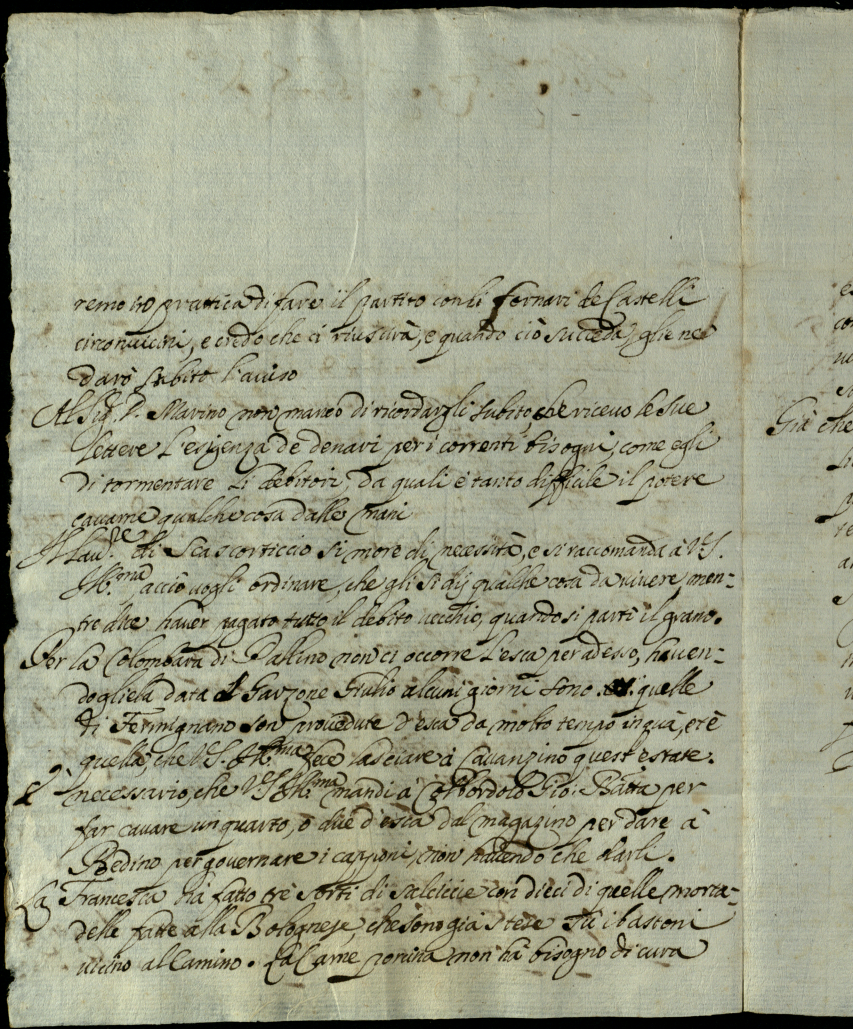 remo in prattica di fare il partito con li fornari de Castelli
circonuicini, e credo che ci riuscirà, e quando ciò succeda, gli ne
darò subito l'auiso
Al Sig.r D. Marino non manco di ricordargli subito, che riceuo le sue
lettere l'esigenza de denari per i correnti bisogni, come egli
di tormentare li debitori, da quali è tanto difficile il potere
cauarne qualche cosa dalle mani
Il Lau.re di Scascorticcio si more di necessità, e si raccomanda à V.S.
Ill.ma acciò uogli ordinare, che gli si dij qualche cosa da uiuere, men-
tre dice hauer pagato tutto il debito uecchio, quando si partì il grano.
Per la Colombara di Pallino non ci occorre l'esca per adesso, hauen-
dogliela data il Garzone Giulio alcuni giorni sono. quelle
di Fermignano son prouedute d'esca da molto tempo in quà, et è
quella, che V.S. Ill.ma fece lasciare à Cauanzino quest'estate.
È necessario, che V.S. Ill.ma mandi à Colbordolo Gio: Batta per
far cauare un quarto, o due d'esca dal magazino per dare à
Bedino per gouernare i capponi, non hauendo che darli.
La Francesca hà fatto trè sorti di salciccie con dieci di quelle morta-
delle fatte alla Bolognese, che sono già stese sù i bastoni
uicino al Camino. La Carne porcina non hà bisogno di cura
Già che